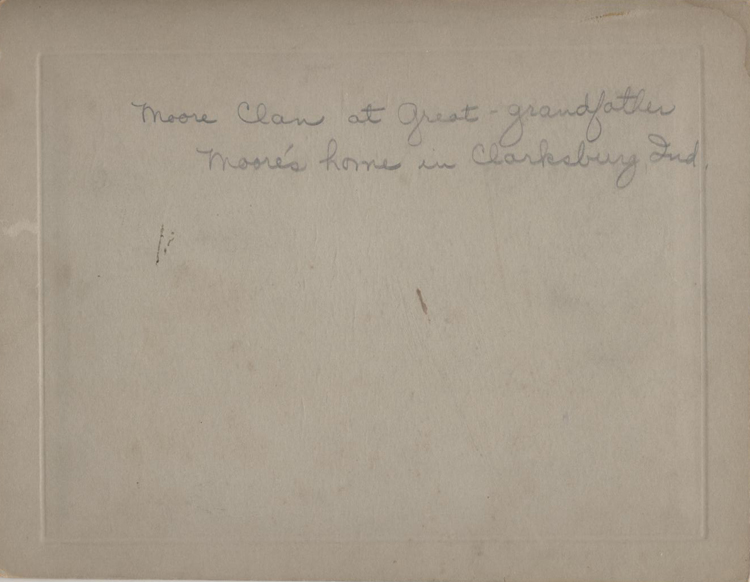 Moore Clan at Great-grandfather
Moore's home in Clarksburg, Ind.